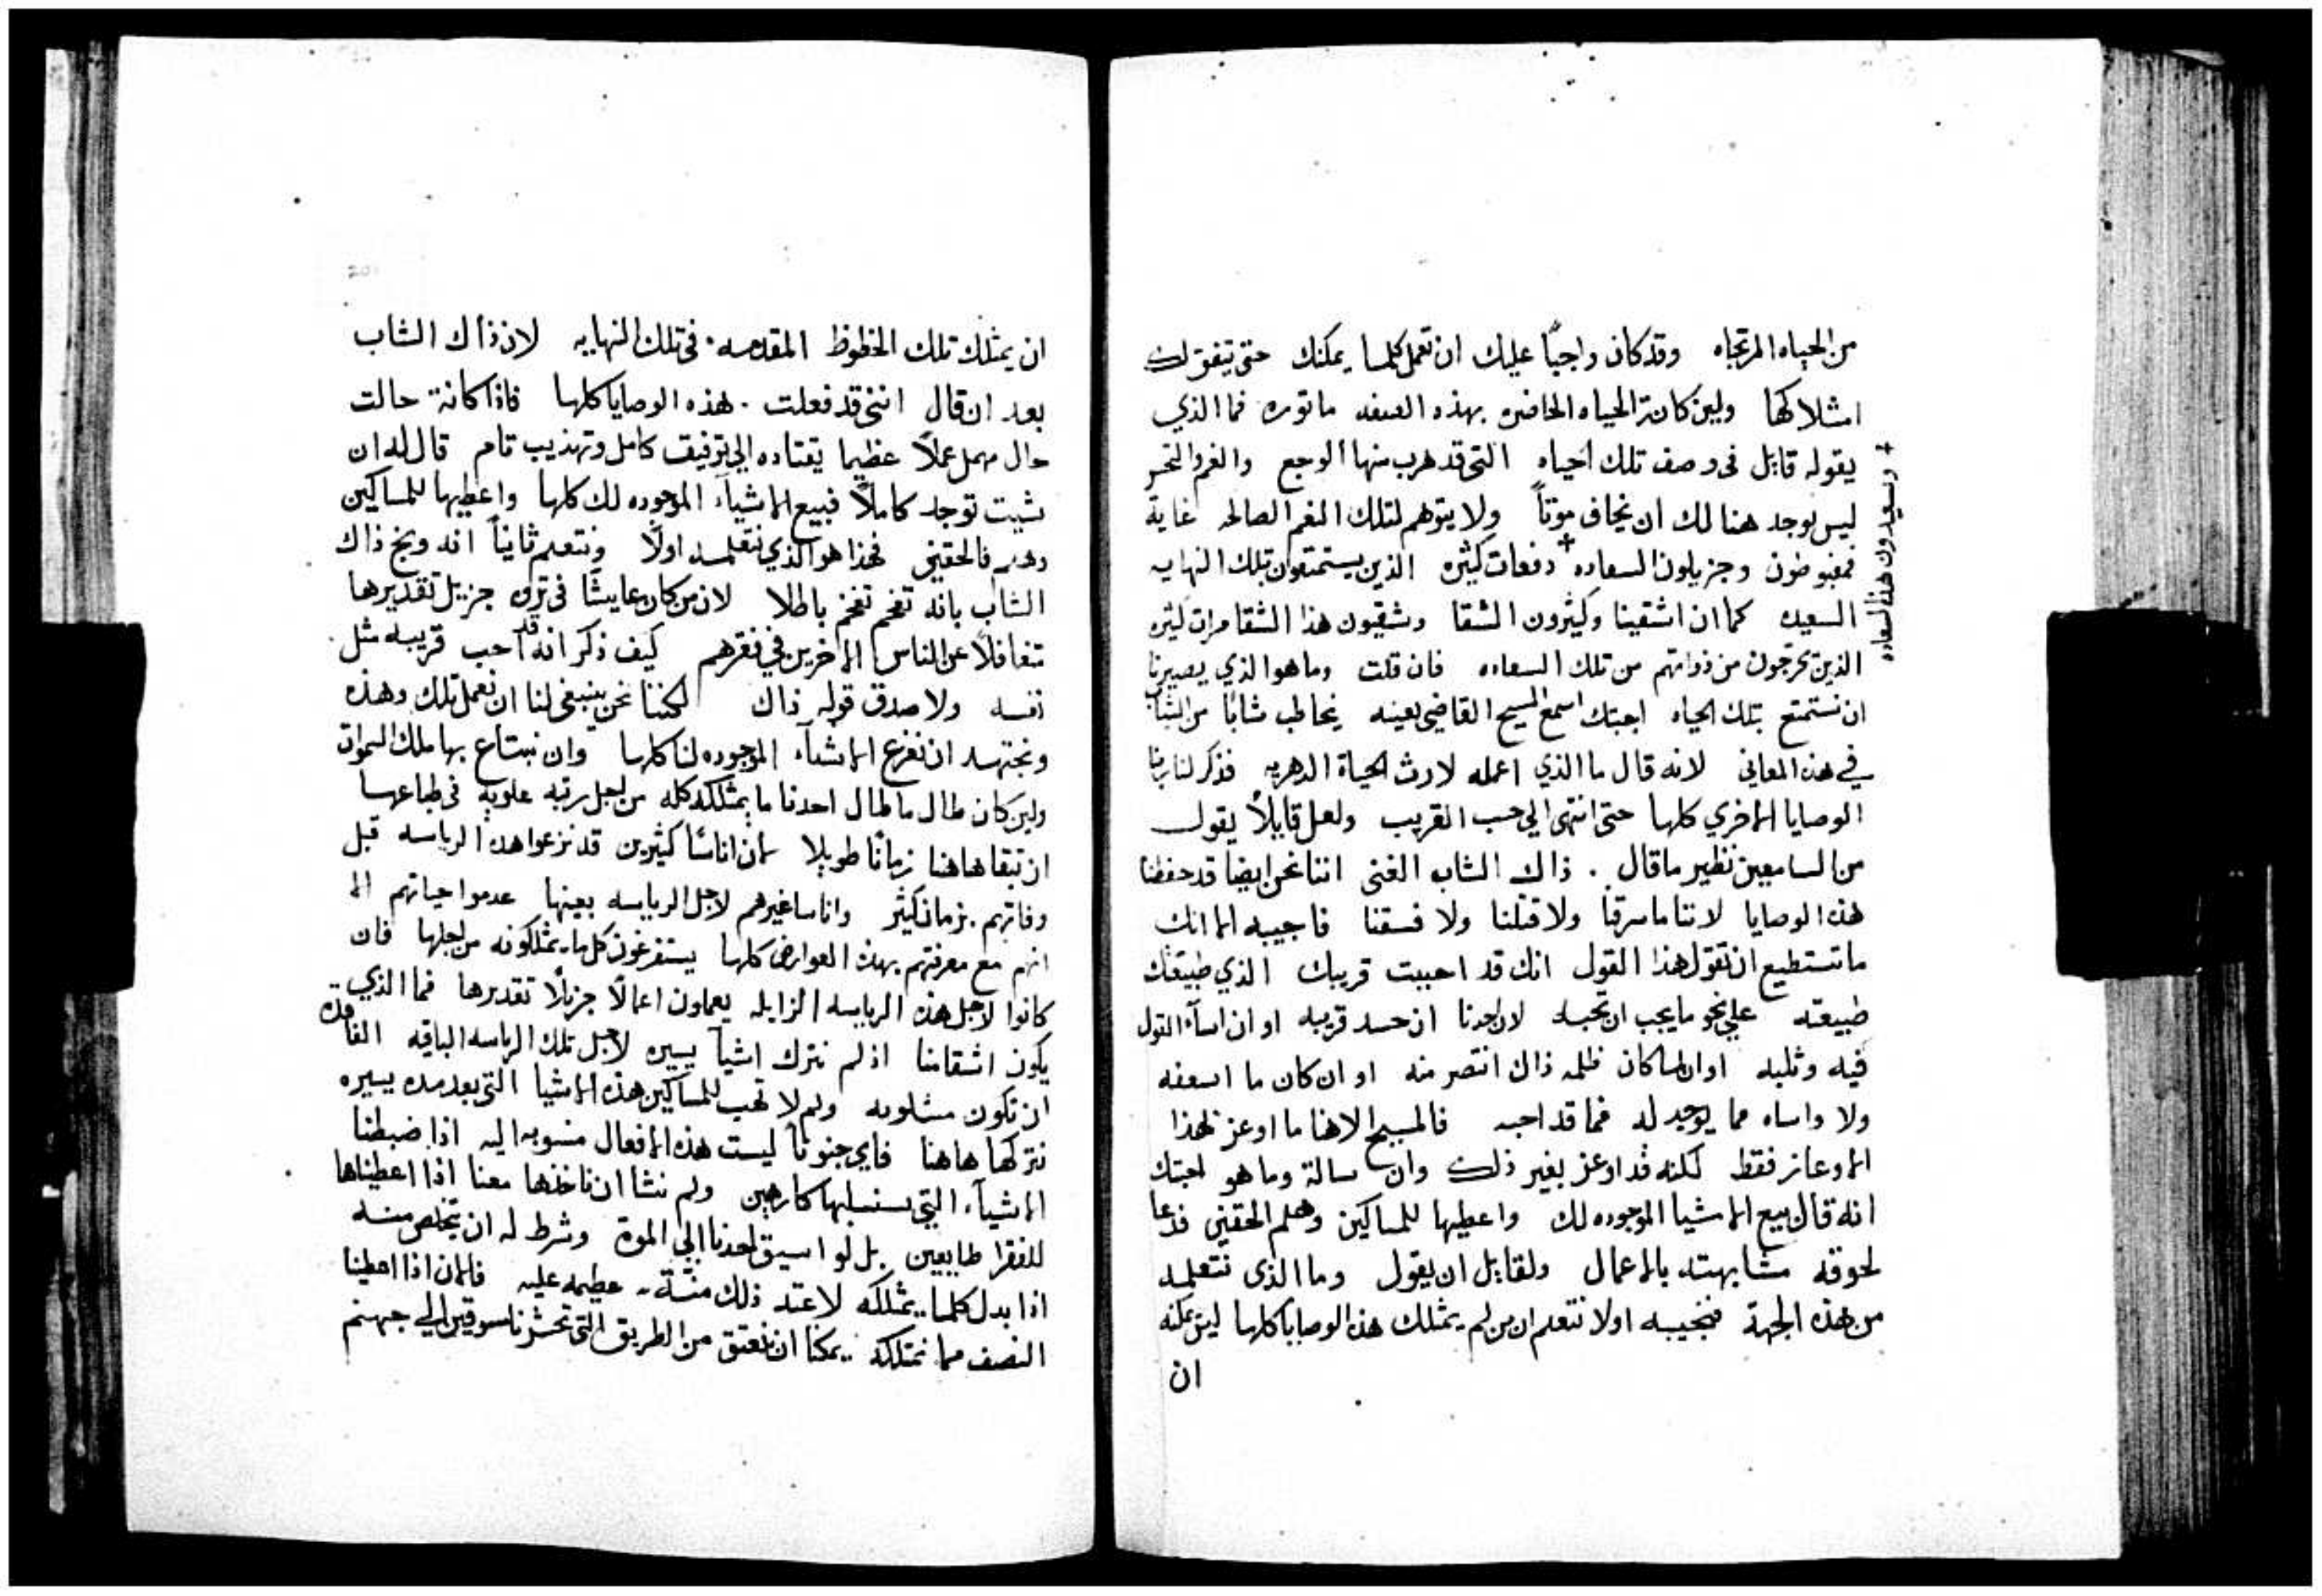 من الحياه المرتجاه وقد كان واجباً عليك ان تعمل كلما يمكنك حتى يتفق لك
امتلاكها ولين كانة الحياه الحاضره بهذه الصفه ماثوره فما الذي
يقوله قايل فى وصف تلك الحياه التى قد هرب منها الوجع والغم والتحسر
ليس يوجد هنالك ان يخاف موتاً ولا يتوهم لتلك النعم الصالحه غاية
فمغبوطون وجزيلون السعاده + دفعات كثيره الذين يستمتعون بتلك النهايه
+ وسعيدون هذا السعاده
السعيده كما ان اشقينا وكثيرون الشقا وشقيون هذا الشقا مرات كثيره
الذين يخرجون من ذواتهم من تلك السعاده فان قلت وما هو الذي يصيرنا
ان نستمتع بتلك الحياه اجبتك اسمع المسيح القاضي بعينه يخاطب شابًا من الشباب
في هذه المعاني لانه قال ما الذي اعمله لارث الحياة الدهريه فذكر لنا ربنا
الوصايا الاخري كلها حتى انتهى الي حب القريب ولعل قايلاً يقول
من السامعين نظير ما قال . ذاك الشاب الغنى اننا نحن ايضا قد حفظنا
هذه الوصايا لاننا ما سرقنا ولا قتلنا ولا فسقنا فاجيبه الا انك
ما تستطيع ان تقول هذا القول انك قد احببت قريبك الذي طبيعتك
طبيعته علي نحو ما يجب ان تحبه لان احدنا ان حسد قريبه او ان اسآء القول
فيه وثلبه او ان لما كان ظلمه ذاك انتصر منه او ان كان ما اسعفه
ولا واساه مما يوجد له فما قد احبه فالمسيح الاهنا ما اوعز لهذا
الاوعاز فقط لكنه قد اوعز بغير ذلك وان سالة وما هو اجبتك
انه قال بيع الاشيا الموجوده لك واعطيها للمساكين وهلم الحقيني فدعا
لحوقه مشابهته بالاعمال ولقايل ان يقول وما الذى نتعلمه
من هذه الجهة فنجيبه اولا نتعلم ان من لم يمتلك هذه الوصايا كلها ليس يمكنه
ان
ان يمتلك تلك الحظوظ المقدمه . فى تلك النهايه لان ذاك الشاب
بعد ان قال اننى قد فعلت . هذه الوصايا كلها فاذا كانة حالت
حال مهمل عملاً عظيما يقتاده الي توفيق كامل وتهذيب تام قال له ان
شيت توجد كاملاً فبيع الاشيآء الموجوده لك كلها واعطيها للمساكين
وهلم فالحقيني فهذا هو الذي نتعلمه اولًا ونتعلم ثانياً انه وبخ ذاك
الشاب بانه تفخم تفخم باطلا لان من كان عايشًا فى ترف جزيل تقديرها
متغافلاً عن الناس الاخرين في فقرهم كيف ذكر انه قد احب قريبه مثل
نفسه ولا صدق قوله ذاك لكننا نحن ينبغى لنا ان نعمل تلك وهذه
ونجتهد ان نفرغ الاشيآء الموجوده لنا كلها وان نبتاع بها ملك السموات
ولين كان طال ما طال احدنا ما يمتلكه كله من اجل رتبه علويه فى طباعها
ان تبقا هاهنا زمانًا طويلا لان اناسًا كثيرين قد نزعوا هذه الرياسه قبل
وفاتهم . بزمان كثير واناسا غيرهم لاجل الرياسه بعينها عدموا حياتهم الا
انهم مع معرفتهم بهذه العوارض كلها يستفرغون كل ما يمتلكونه من اجلها فان
كانوا لاجل هذه الرياسه الزايله يعملون اعمالاً جزيلاً تقديرها فما الذي
يكون اشقا منا اذ لم نترك اشيآ يسيره لاجل تلك الرياسه الباقيه الفاقده
ان تكون مسلوبه ولم لا نهب للمساكين هذه الاشيا التى بعد مده يسيره
نتركها هاهنا فاي جنونا ليست هذه الافعال منسوبه اليه اذا ضبطنا
الاشيآء التي سنسلبها كارهين ولم نشا ان ناخذها معنا اذا اعطيناها
للفقرا طايعين . بل لو اسيق احدنا الي الموة وشرط له ان يتخلص منه
اذا بدل كلما . يمتلكه لاعتد ذلك منّة . عظيمه عليه فالان اذا اعطينا
النصف مما نمتلكه . يمكنا ان نعتق من الطريق التى تحشرنا سوقين الي جهنم